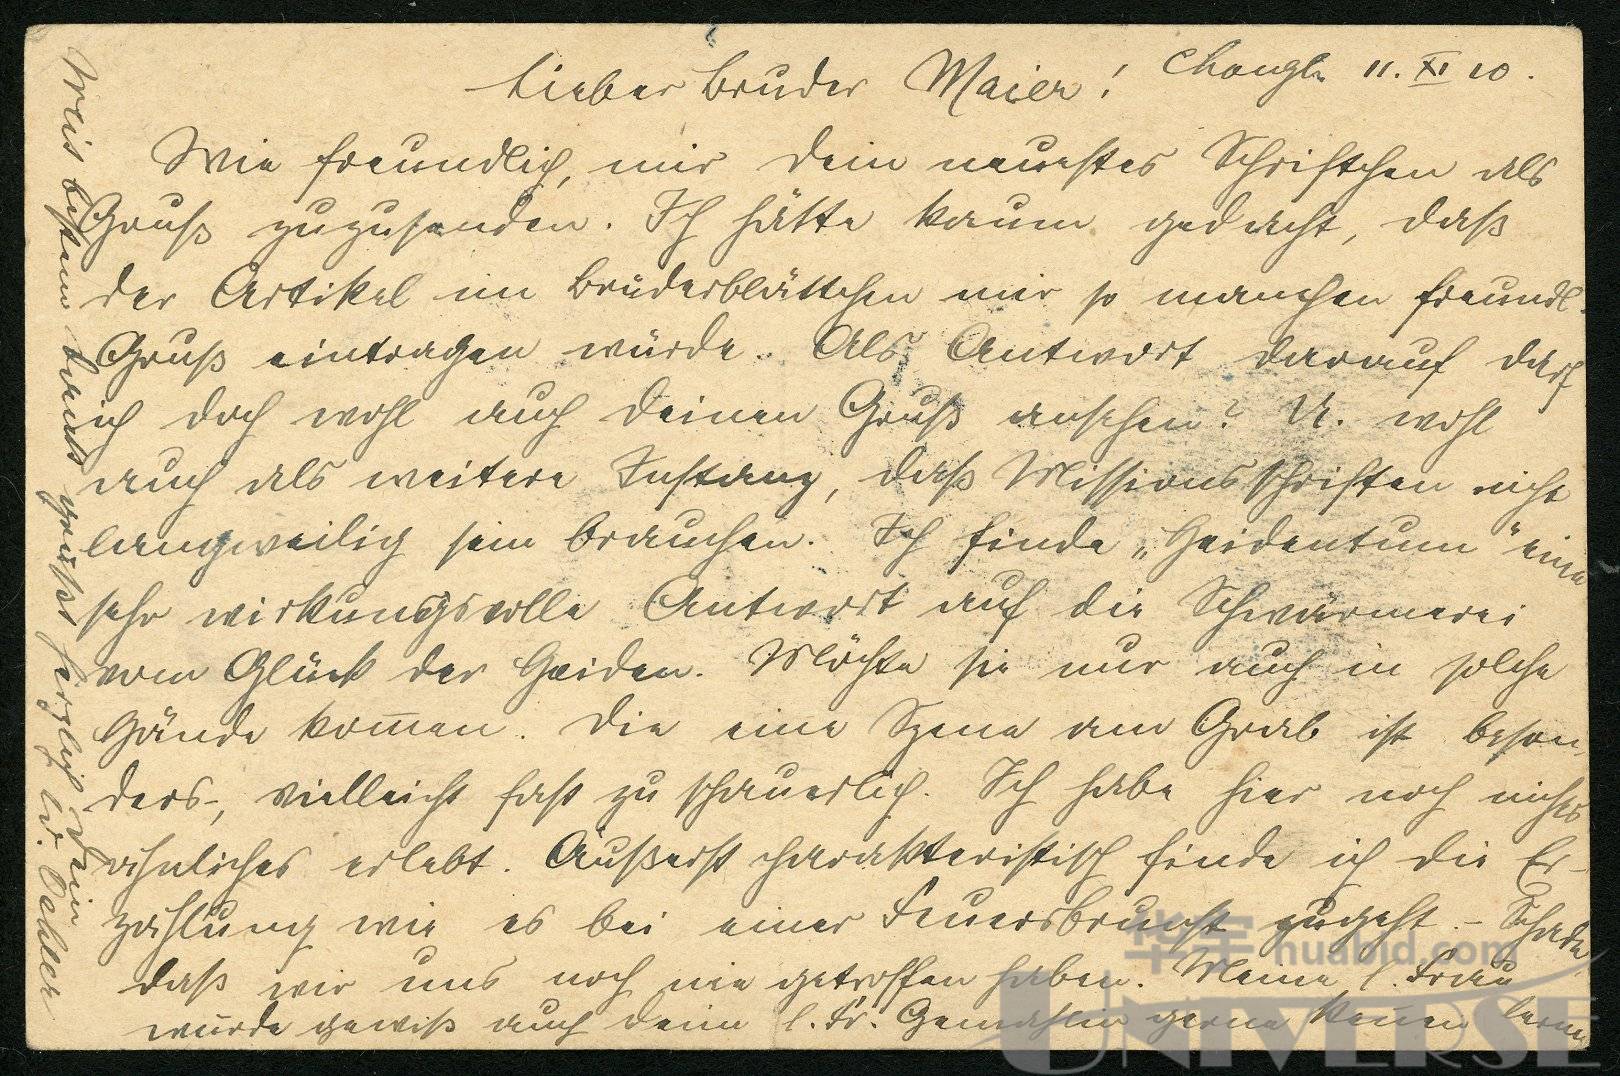 Lieber Bruder Maier! 11. XI 10.
Wie freundlich, mir Dein neuestes Schriftchen als
Gruß zuzusenden. Ich hätte kaum gedacht, daß
der Artikel im Brüderblättchen mir so manchen freundl.
Gruß eintragen würde. Als Antwort darauf darf
ich doch wohl auch Deinen Gruß ansehen? U. wohl
auch als weitere Instanz, daß Missionsschriften nicht
langweilig sein brauchen. Ich finde „Heidentum" eine
sehr wirkungsvolle Antwort auf die Schwärmerei
vom Glück der Heiden. Möchte sie nur auch in solche
Hände kom̅en. Die eine Szene am Grab ist beson-
ders-, vielleicht fast zu schauerlich. Ich habe hier noch nichts
ähnliches erlebt. Äußerst charakteristisch finde ich die Er-
zählung wie es bei einer Feuersbrunst zugeht. – Schade
daß wir uns noch nie getroffen haben. Meine l. Frau
würde gewiß auch Deine l. Fr. Gemahlin gerne kennen lernen
bestem grüßt herzlich Dein
W. Oehler
华宇 huabid.com
UNIVERSE